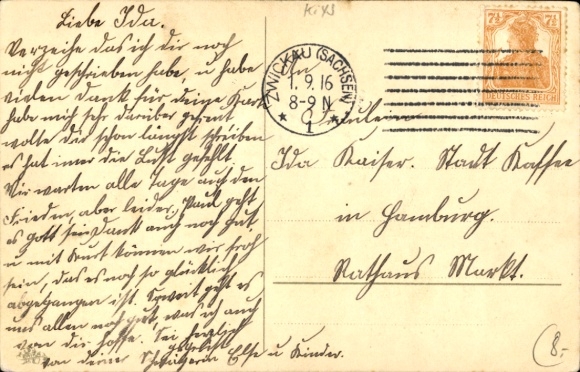 K.XI
Liebe Ida.
Verzeihe das ich dir noch
nicht geschrieben habe, u habe
vielen Dank für deine Kart
habe mich sehr darüber gefreut
wollte dir schon längst schreiben
es hat imer die Lust gefehlt.
Wir warten alle Tage auf den
Frieden, aber leider. Paul geht
es Gott sei Dank auch noch gut.
u mit Kurt können wir froh
sein, das es noch so glücklich
abgegangen ist. Soweit geht es
uns allen noch gut, was ich auch
von dir hoffe. Sei herzlich
gegrüßt
von deiner Schwägerin Else u Kinder.
ZWICKAU (SACHSEN)
1.9.16
8-9 N
1
7½ 7½
DEUTSCHES REICH
An
Ida Kaiser. Stadt Kaffee
in Hamburg.
Rathaus Markt.
8.-